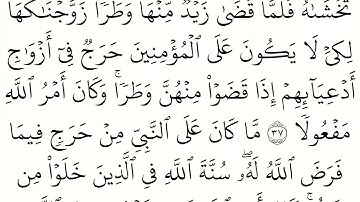 تَخْشَىٰهُ فَلَمَّا قَضَىٰ زَيْدٌ مِّنْهَا وَطَرًا زَوَّجْنَٰكَهَا
لِكَىْ لَا يَكُونَ عَلَى الْمُؤْمِنِينَ حَرَجٌ فِىٓ أَزْوَٰجِ
أَدْعِيَآئِهِمْ إِذَا قَضَوْا۟ مِنْهُنَّ وَطَرًا ۚ وَكَانَ أَمْرُ اللَّهِ
مَفْعُولًا ٣٧ مَّا كَانَ عَلَى النَّبِىِّ مِنْ حَرَجٍ فِيمَا
فَرَضَ اللَّهُ لَهُۥ ۖ سُنَّةَ اللَّهِ فِى الَّذِينَ خَلَوْا۟ مِن